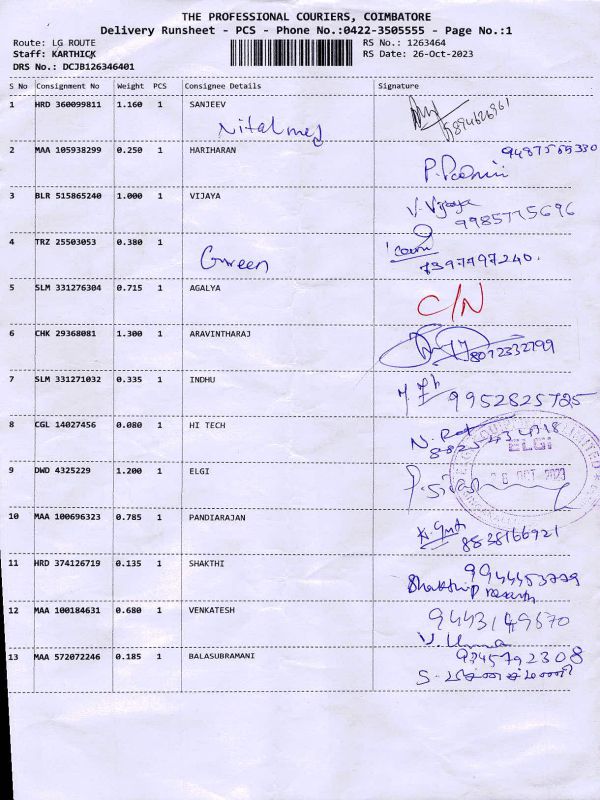 THE PROFESSIONAL COURIERS, COIMBATORE
Delivery Runsheet - PCS - Phone No.:0422-3505555 - Page No.:1
Route: LG ROUTE RS No.: 1263464
Staff: KARTHICK RS Date: 26-Oct-2023
DRS No.: DCJB126346401
S No Consignment No Weight PCS Consignee Details Signature
1 HRD 360099811 1.160 1 SANJEEV
Nitalmed
2 MAA 105938299 0.250 1 HARIHARAN
3 BLR 515865240 1.000 1 VIJAYA V. Vijaya
9985775696
4 TRZ 25503053 0.380 1
Gureen 7397497240.
5 SLM 331276304 0.715 1 AGALYA C/N
6 CHK 29368081 1.300 1 ARAVINTHARAJ
8072332799
7 SLM 331271032 0.335 1 INDHU 9952825725
8 CGL 14027456 0.080 1 HI TECH
ELGI
9 DWD 4325229 1.200 1 ELGI
OCT 2023
10 MAA 100696323 0.785 1 PANDIARAJAN
8838166921
11 HRD 374126719 0.135 1 SHAKTHI 9944453779
12 MAA 100184631 0.680 1 VENKATESH 9443149670
13 MAA 572072246 0.185 1 BALASUBRAMANI 9345792308